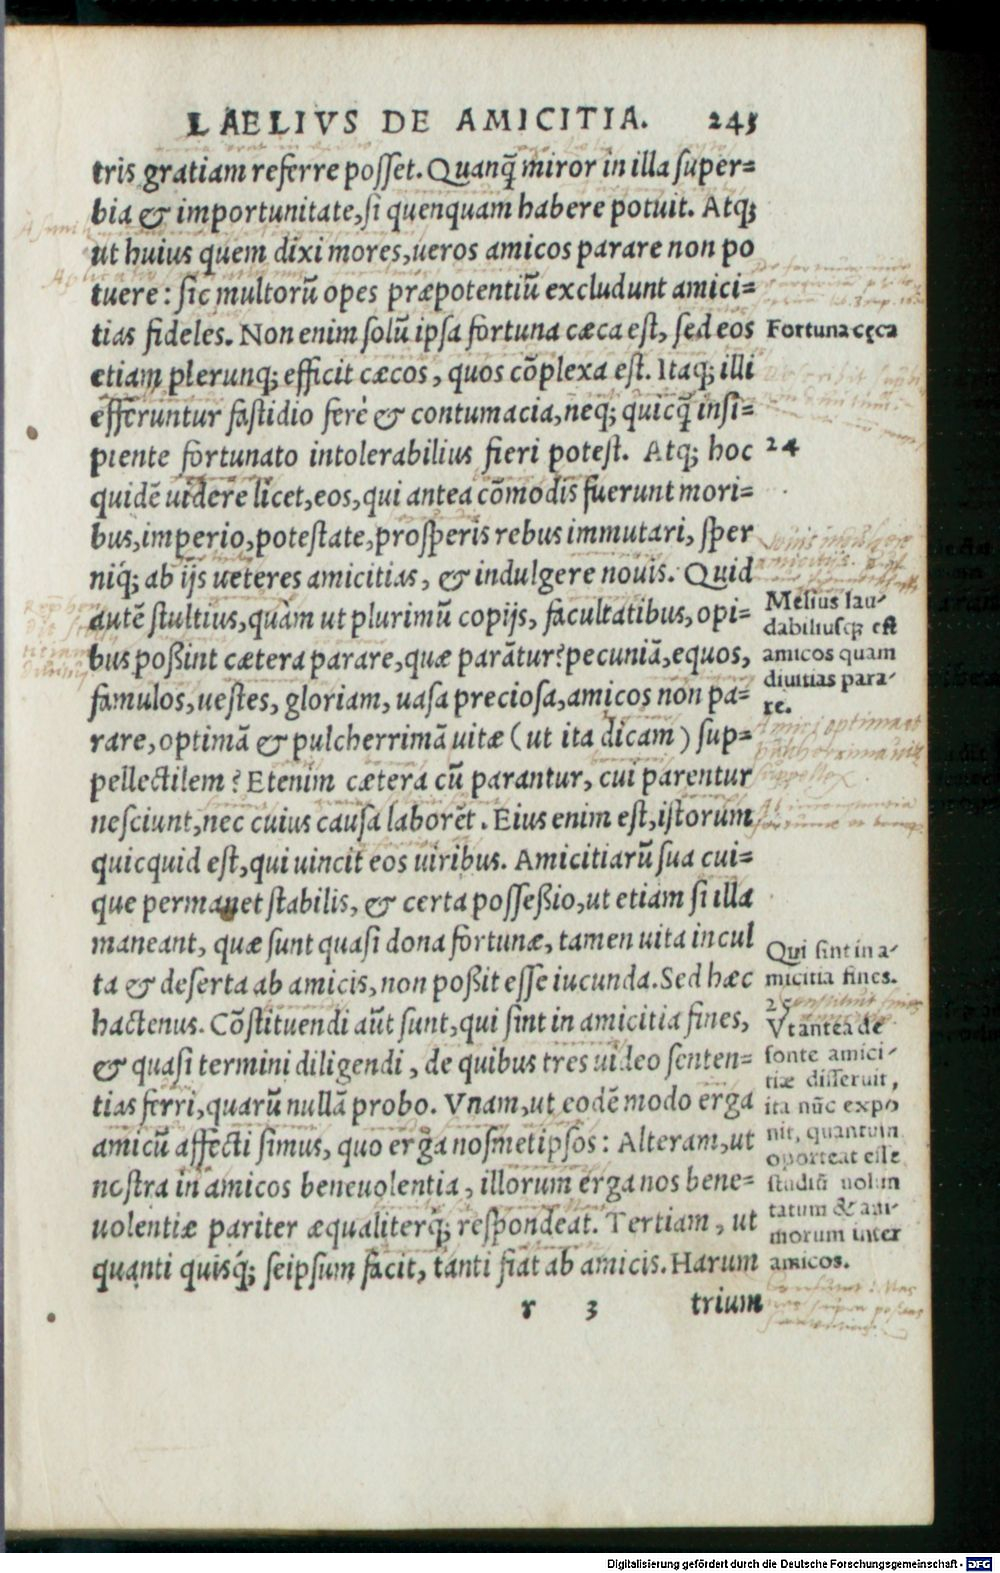 LAELIVS DE AMICITIA. 245
tris gratiam referre posset. Quanq̃ miror in illa super=
bia & importunitate, si quenquam habere potuit. Atq;
ut huius quem dixi mores, ueros amicos parare non po
tuere: sic multorũ opes præpotentiũ excludunt amici=
tias fideles. Non enim solũ ipsa fortuna cæca est, sed eos
etiam plerunq; efficit cæcos, quos cõplexa est. Itaq; illi
efferuntur fastidio ferè & contumacia, neq; quicq̃ insi=
piente fortunato intolerabilius fieri potest. Atq; hoc
quidẽ uidere licet, eos, qui antea cõmodis fuerunt mori=
bus, imperio, potestate, prosperis rebus immutari, sper
niq́; ab ijs ueteres amicitias, & indulgere nouis. Quid
autẽ stultius, quàm ut plurimũ copijs, facultatibus, opi=
bus poßint cætera parare, quæ parãtur? pecuniã, equos,
famulos, uestes, gloriam, uasa preciosa, amicos non pa=
rare, optimã & pulcherrimã uitæ (ut ita dicam) sup=
pellectilem? Etenim cætera cũ parantur, cui parentur
nesciunt, nec cuius causa laborẽt. Eius enim est, istorum
quicquid est, qui uincit eos uiribus. Amicitiarũ sua cui=
que permanet stabilis, & certa posseßio, ut etiam si illa
maneant, quæ sunt quasi dona fortunæ, tamen uita incul
ta & deserta ab amicis, non poßit esse iucunda. Sed hæc
hactenus. Cõstituendi aũt sunt, qui sint in amicitia fines,
& quasi termini diligendi, de quibus tres uideo senten=
tias ferri, quarũ nullã probo. Vnam, ut eodẽ modo erga
amicũ affecti simus, quo erga nosmetipsos: Alteram, ut
nostra in amicos beneuolentia, illorum erga nos bene=
uolentiæ pariter æqualiterq́; respondeat. Tertiam, ut
quanti quisq́; seipsum facit, tanti fiat ab amicis. Harum
r 3 trium
Fortuna cęca
24
Melius lau-
dabiliusq; est
amicos quam
diuitias para-
re.
Amici optima et
pulcherrima uitæ
suppellex
Qui sint in a-
micitia fines.
25
Vt antea de
fonte amici-
tiæ disseruit,
ita nũc expo
nit, quantum
oporteat esse
studiũ uolun
tatum & ani-
morum inter
amicos.
Digitalisierung gefördert durch die Deutsche Forschungsgemeinschaft - DFG